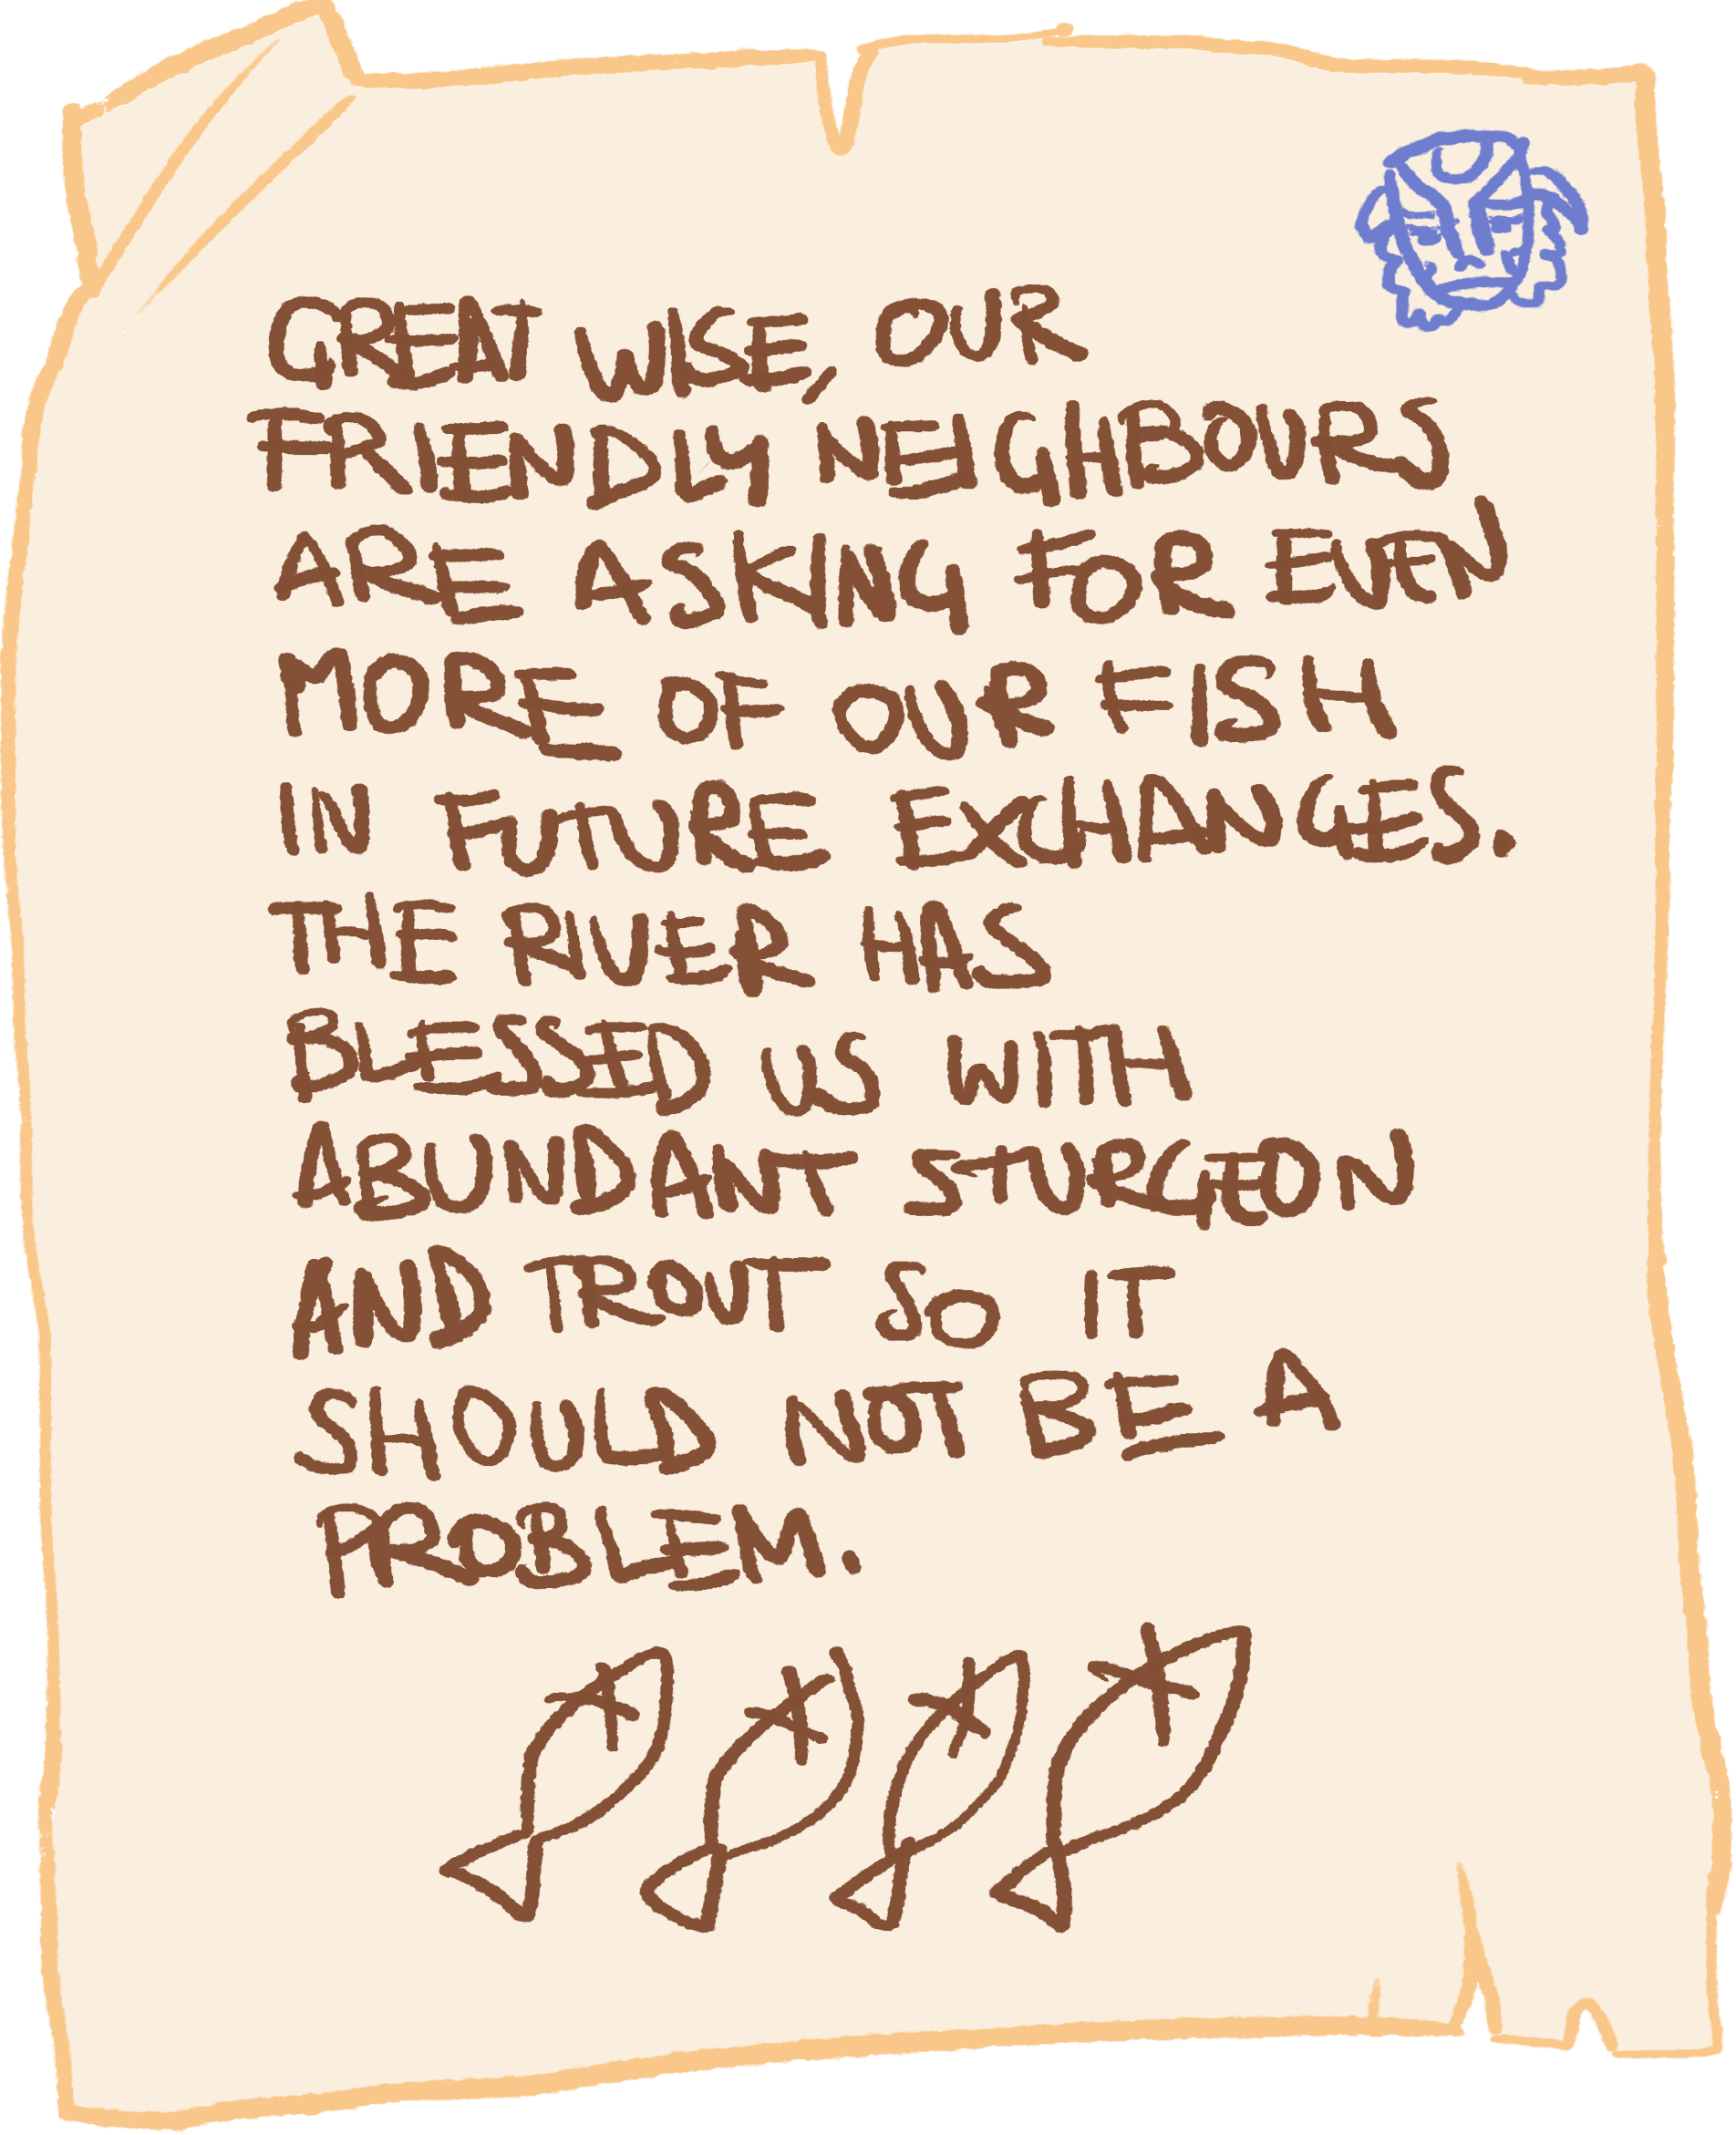 GREAT WISE, OUR
FRIENDLY NEIGHBOURS
ARE ASKING FOR EVEN
MORE OF OUR FISH
IN FUTURE EXCHANGES.
THE RIVER HAS
BLESSED US WITH
ABUNDANT STURGEON
AND TROUT SO IT
SHOULD NOT BE A
PROBLEM.